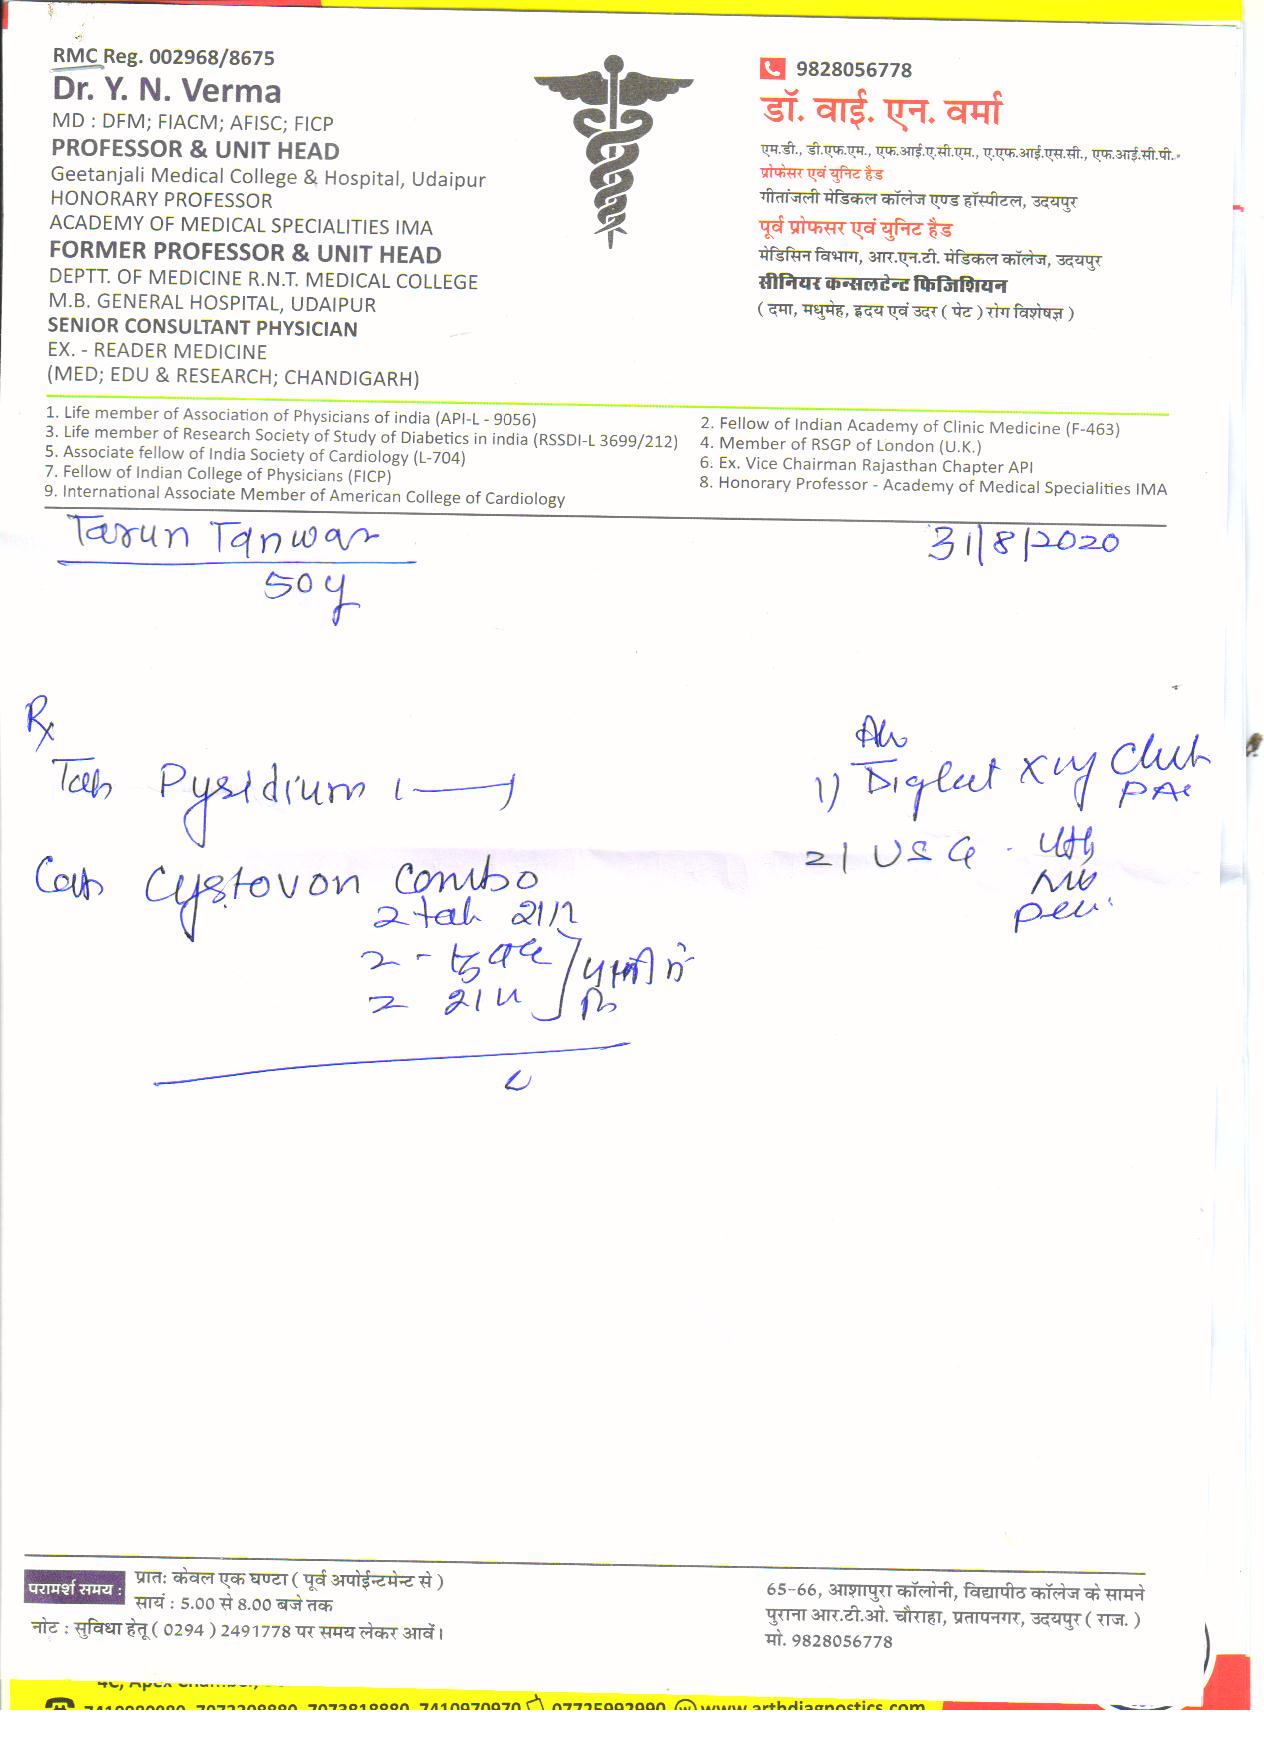 RMC Reg. 002968/8675
Dr. Y. N. Verma
MD : DFM; FIACM; AFISC; FICP
PROFESSOR & UNIT HEAD
Geetanjali Medical College & Hospital, Udaipur
HONORARY PROFESSOR
ACADEMY OF MEDICAL SPECIALITIES IMA
FORMER PROFESSOR & UNIT HEAD
DEPTT. OF MEDICINE R.N.T. MEDICAL COLLEGE
M.B. GENERAL HOSPITAL, UDAIPUR
SENIOR CONSULTANT PHYSICIAN
EX. - READER MEDICINE
(MED; EDU & RESEARCH; CHANDIGARH)
9828056778
डॉ. वाई. एन. वर्मा
एम.डी., डी.एफ.एम., एफ.आई.ए.सी.एम., ए.एफ.आई.एस.सी., एफ.आई.सी.पी.
प्रोफेसर एवं युनिट हैड
गीतांजली मेडिकल कॉलेज एण्ड हॉस्पीटल, उदयपुर
पूर्व प्रोफसर एवं युनिट हैड
मेडिसिन विभाग, आर.एन.टी. मेडिकल कॉलेज, उदयपुर
सीनियर कन्सलटेन्ट फिजिशियन
( दमा, मधुमेह, हृदय एवं उदर ( पेट ) रोग विशेषज्ञ )
1. Life member of Association of Physicians of india (API-L - 9056)
2. Fellow of Indian Academy of Clinic Medicine (F-463)
3. Life member of Research Society of Study of Diabetics in india (RSSDI-L 3699/212)
4. Member of RSGP of London (U.K.)
5. Associate fellow of India Society of Cardiology (L-704)
6. Ex. Vice Chairman Rajasthan Chapter API
7. Fellow of Indian College of Physicians (FICP)
8. Honorary Professor - Academy of Medical Specialities IMA
9. International Associate Member of American College of Cardiology
Tarun Tanwar
31/8/2020
50 y
Rx
Tab Pysidium 1
Cap Cystovon Combo
2 tab
2 -
2
1)
2) USG
परामर्श समय :
प्रातः केवल एक घण्टा ( पूर्व अपोईन्टमेन्ट से )
सायं : 5.00 से 8.00 बजे तक
नोट : सुविधा हेतू ( 0294 ) 2491778 पर समय लेकर आवें।
65-66, आशापुरा कॉलोनी, विद्यापीठ कॉलेज के सामने
पुराना आर.टी.ओ. चौराहा, प्रतापनगर, उदयपुर ( राज. )
मो. 9828056778
07725992990 www.arthdiagnostics.com